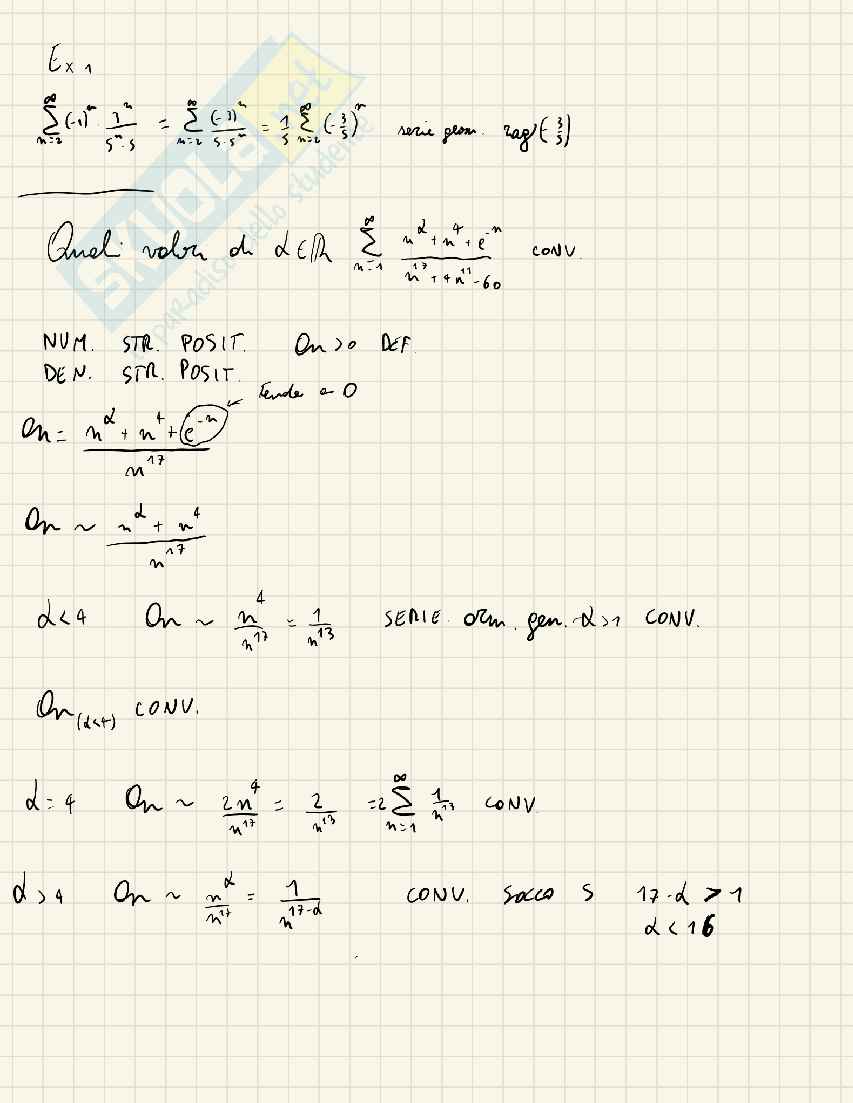 Ex 1
∑_{n=2}^{∞} (-1)^n · 3^n/(5^n·5) = ∑_{n=2}^{∞} (-3)^n/(5·5^n) = 1/5 ∑_{n=2}^{∞} (-3/5)^n serie geom. rag (-3/5)
Quali valori di α∈ℝ ∑_{n=1}^{∞} (n^α + n^4 + e^{-n})/(n^{17} + 4n^{11} - 60) CONV.
NUM. STR. POSIT. an>0 DEF.
DEN. STR. POSIT.
tende a 0
an = (n^α + n^4 + e^{-n})/n^{17}
an ~ (n^α + n^4)/n^{17}
α<4 an ~ n^4/n^{17} = 1/n^{13} SERIE arm. gen. α>1 CONV.
an_{(α<4)} CONV.
α=4 an ~ 2n^4/n^{17} = 2/n^{13} =2 ∑_{n=1}^{∞} 1/n^{13} CONV
α>4 an ~ n^α/n^{17} = 1/n^{17-α} CONV. S 17-α > 1
α < 16
SKUOLA.net
il paradiso dello studente